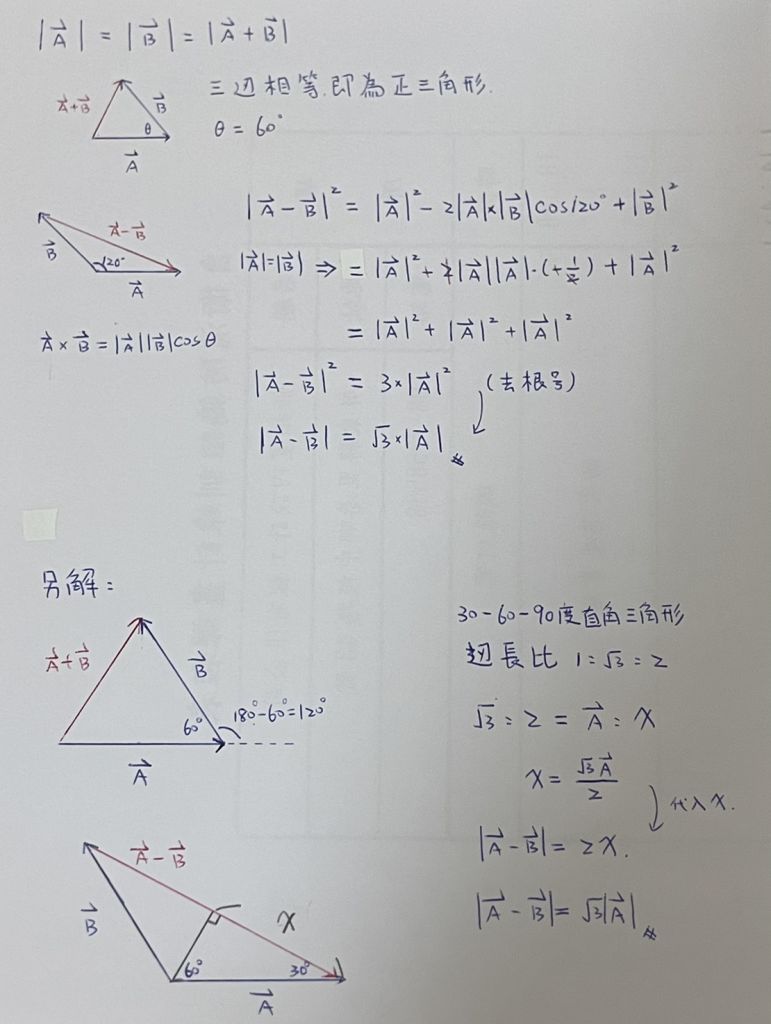 |A⃗| = |B⃗| = |A⃗ + B⃗|
三边相等.即為正三角形.
A⃗+B⃗
B⃗
θ
A⃗
θ = 60°
|A⃗ - B⃗|² = |A⃗|² - 2|A⃗|×|B⃗|cos120° + |B⃗|²
A⃗-B⃗
B⃗
120°
A⃗
|A⃗|=|B⃗| ⇒ = |A⃗|² + 2|A⃗||A⃗|·(+1/2) + |A⃗|²
A⃗ × B⃗ = |A⃗||B⃗|cosθ
= |A⃗|² + |A⃗|² + |A⃗|²
|A⃗ - B⃗|² = 3×|A⃗|² (去根号)
|A⃗ - B⃗| = √3×|A⃗|
另解：
A⃗+B⃗
B⃗
60°
180°-60°=120°
A⃗
30-60-90度直角三角形
边長比 1:√3:2
√3 : 2 = A⃗ : x
x = √3A⃗/2
代入x.
|A⃗ - B⃗| = 2x.
|A⃗ - B⃗| = √3|A⃗|
A⃗ - B⃗
B⃗
x
60°
30°
A⃗